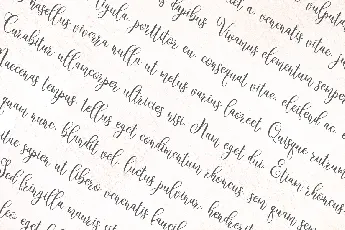 a. venenatis vitae, ju
dapibus. Vivamus elementum semper
Phasellus viverra nulla ut metus varius laoreet. Quisque rutrum
ligula, porttitor eu, consequat vitae, eleifend ac, e
Curabitur ullamcorper ultricies nisi. Nam eget dui. Etiam rhoncus.
Maecenas tempus, tellus eget condimentum rhoncus, sem quam sem
quam nunc, blandit vel, luctus pulvinar, hendrerit
vitae sapien ut libero venenatis faucib
Sed fringilla mauris sit
leo eget